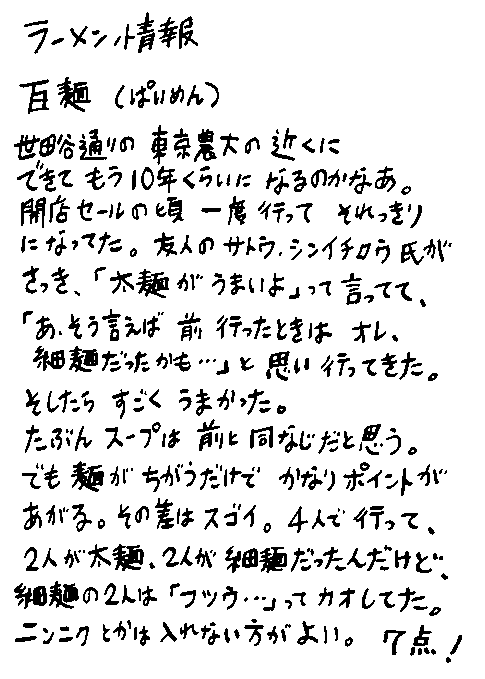 ラーメン情報
百麺（ぱいめん）
世田谷通りの 東京農大の 近くに
できて もう10年くらいに なるのかなあ。
開店セールの頃 一度行って それっきり
になってた。友人のサトウ.シンイチロウ氏が
さっき、「太麺が うまいよ」って言ってて、
「あ、そう言えば 前 行ったときは オレ、
細麺だったかも…」と 思い行ってきた。
そしたら すごく うまかった。
たぶん スープは 前と 同なじだと思う。
でも麺が ちがうだけで かなりポイントが
あがる。その差はスゴイ。4人で行って、
2人が太麺、2人が細麺だったんだけど、
細麺の2人は「フツウ…」ってカオしてた。
ニンニクとかは入れない方がよい。 7点！